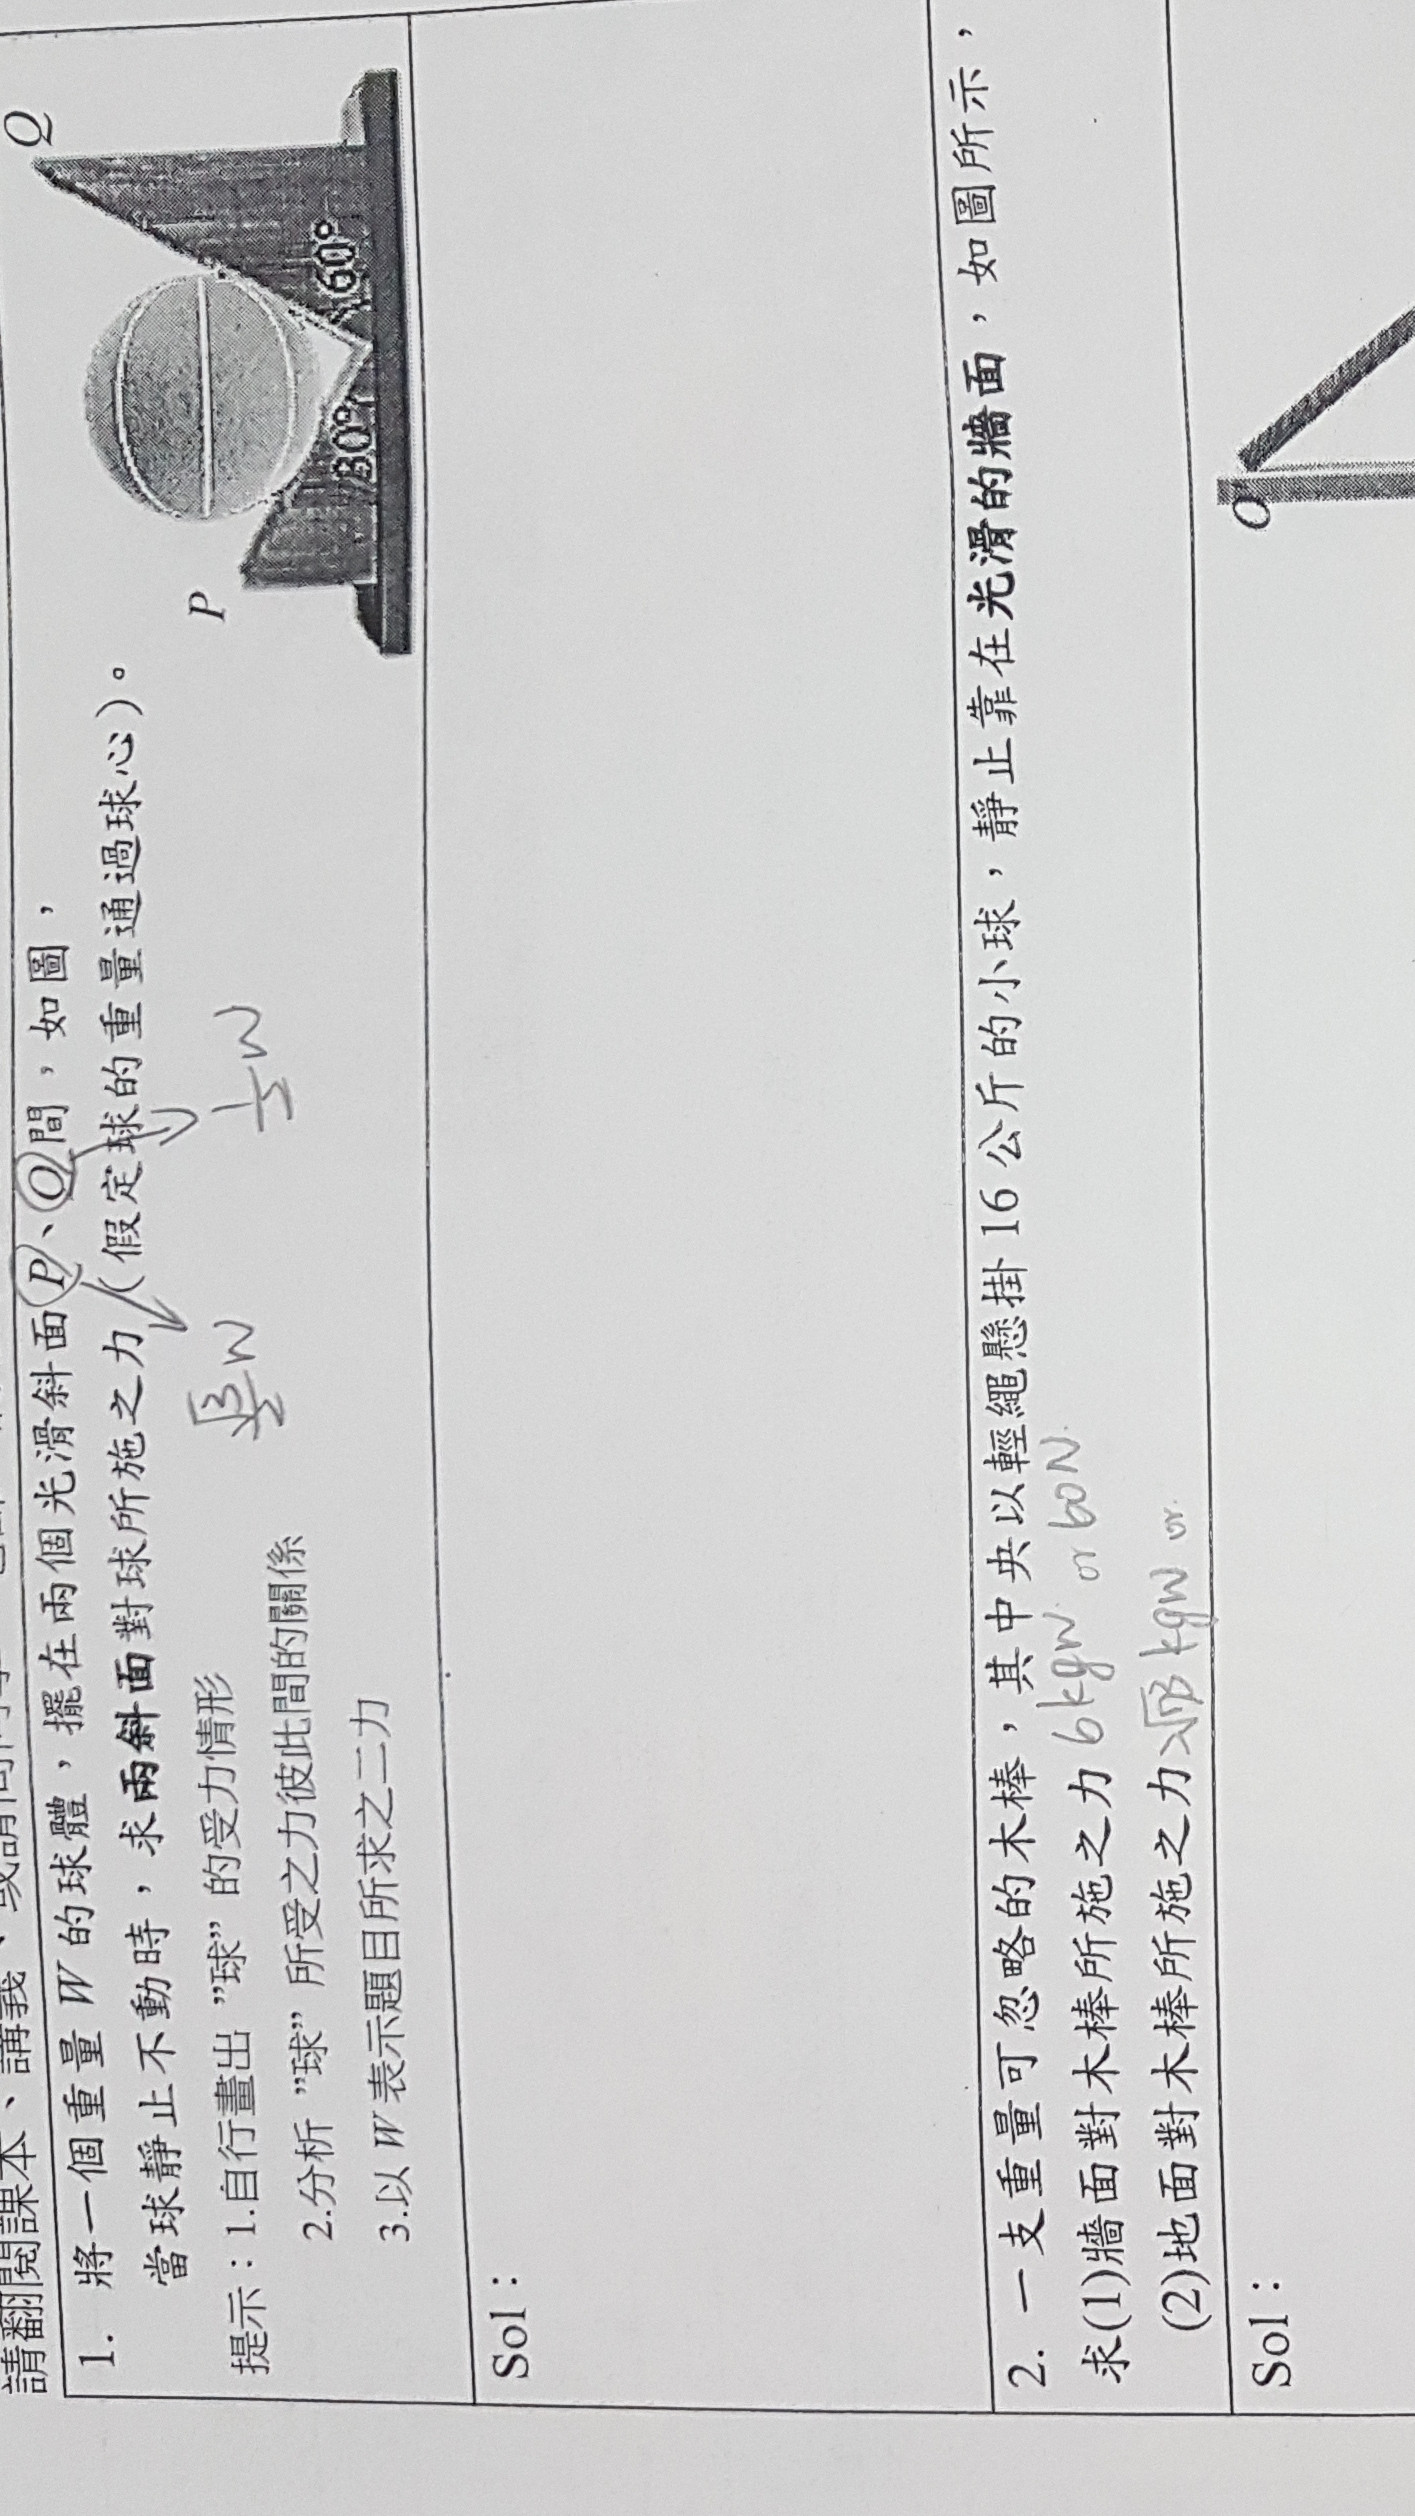 請翻閱課本、講義、或請問同學
1. 將一個重量 W 的球體，擺在兩個光滑斜面 P、Q 間，如圖，
當球靜止不動時，求兩斜面對球所施之力(假定球的重量通過球心)。
√3/2 W 1/2 W
提示：1.自行畫出 ”球” 的受力情形
2.分析 ”球” 所受之力彼此間的關係
3.以 W 表示題目所求之二力
P
Q
30°
60°
Sol：
2. 一支重量可忽略的木棒，其中央以輕繩懸掛 16 公斤的小球，靜止靠在光滑的牆面，如圖所示，
求(1)牆面對木棒所施之力 6kgw or 60N
(2)地面對木棒所施之力 kgw or
Sol：
O